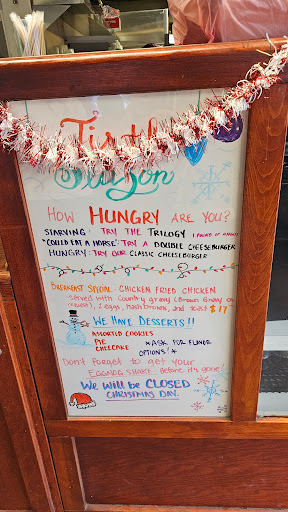 Tis the
Season
HOW HUNGRY ARE YOU?
STARVING: TRY THE TRILOGY 1 POUND OF
"COULD EAT A HORSE": TRY A DOUBLE CHEESEBURGER
HUNGRY: TRY OUR CLASSIC CHEESEBURGER
BREAKFAST SPECIAL: CHICKEN FRIED CHICKEN
served with country gravy (Brown Gravy on
request), 2 eggs, hashbrowns, and toast $17
WE HAVE DESSERTS!!
ASSORTED COOKIES
PIE
CHEECAKE
*ASK FOR FLAVOR
OPTIONS!*
Don't forget to get your
EGGNOG SHAKE Before it's gone!
We will be CLOSED
CHRISTMAS DAY.